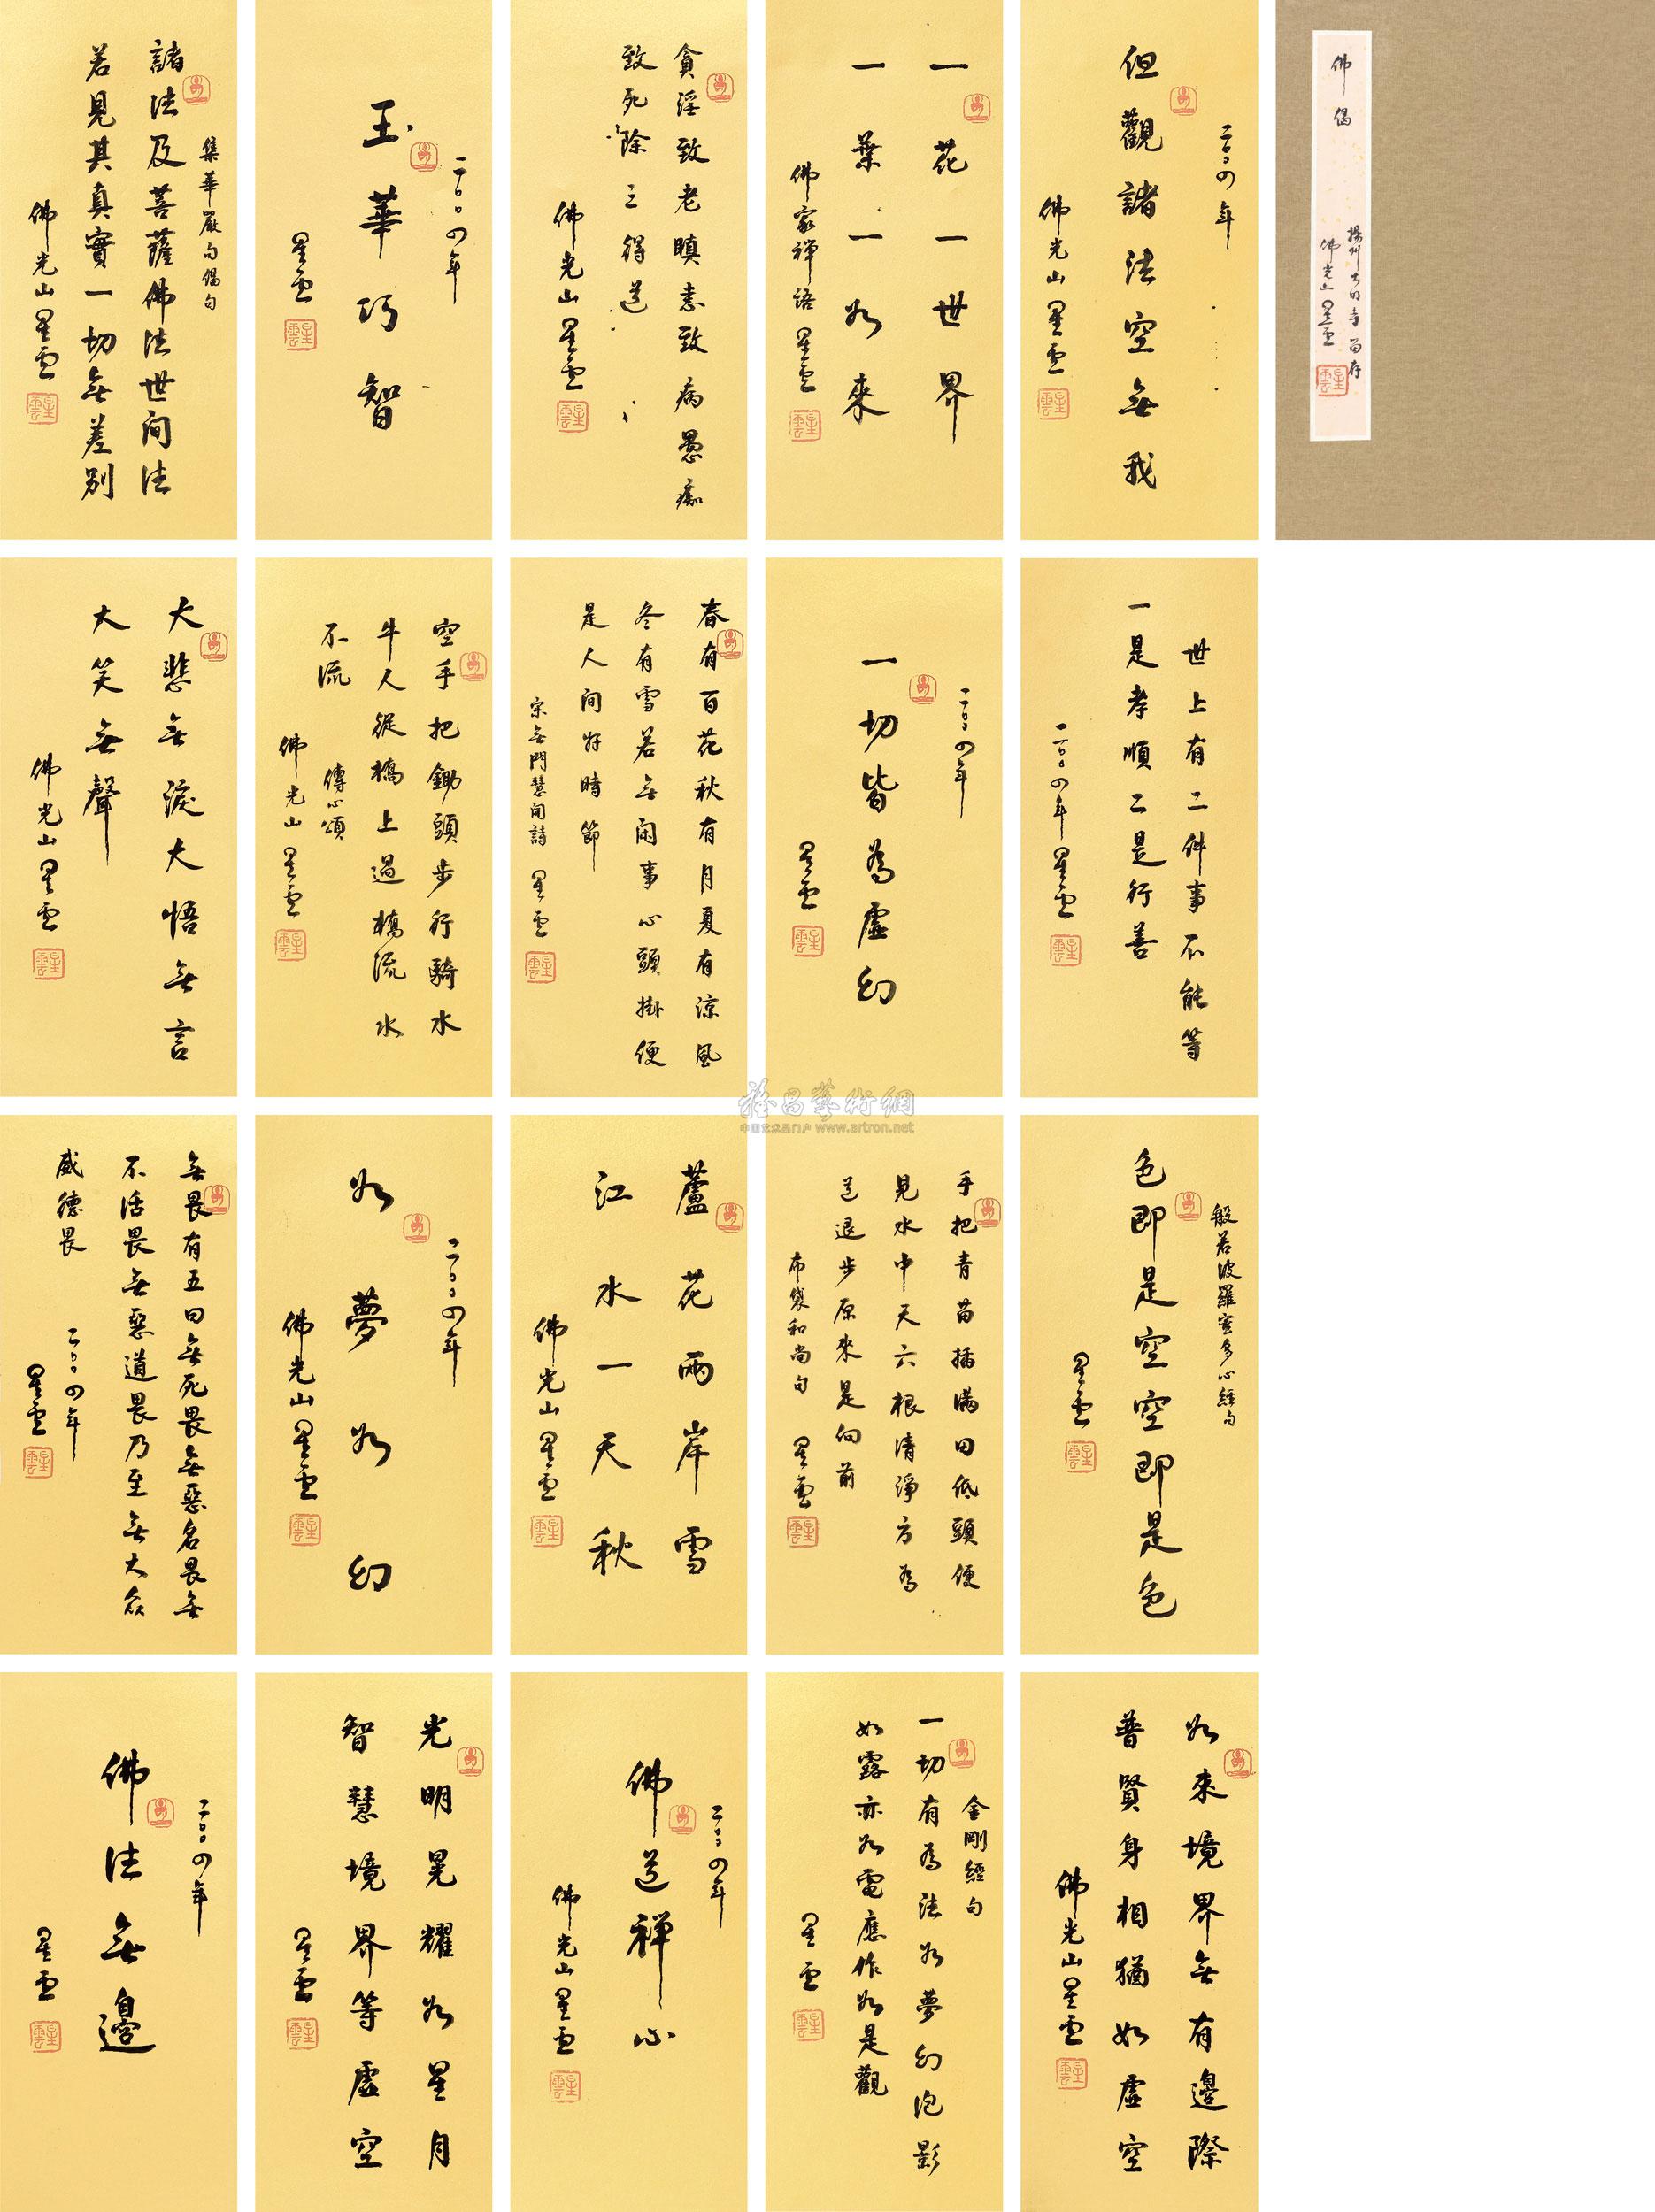 佛偈
揚州大明寺留存
佛光山星雲
星雲
二〇〇四年
但觀諸法空無我
佛光山星雲
星雲
一花一世界
一葉一如來
佛家禅語 星雲
星雲
貪淫致老瞋恚致病愚癡
致死除三得道
佛光山星雲
星雲
二〇〇四年
玉華巧智
星雲
星雲
集華嚴句偈句
諸法及菩薩佛法世间法
若見其真實一切無差別
佛光山星雲
星雲
世上有二件事不能等
一是孝順二是行善
二〇〇四年星雲
星雲
二〇〇四年
一切皆為虛幻
星雲
星雲
春有百花秋有月夏有涼風
冬有雪若無闲事心頭掛便
是人间好時節
宋無門慧開詩 星雲
星雲
空手把鋤頭步行騎水
牛人從橋上過橋流水
不流
傅心頌
佛光山 星雲
星雲
大悲無淚大悟無言
大笑無聲
佛光山星雲
星雲
般若波羅蜜多心經句
色即是空空即是色
星雲
星雲
手把青苗插滿田低頭便
見水中天六根清淨方為
道退步原來是向前
布袋和尚句 星雲
星雲
蘆花兩岸雪
江水一天秋
佛光山星雲
星雲
二〇〇四年
如夢如幻
佛光山星雲
星雲
無畏有五曰無死畏無惡名畏無
不活畏無惡道畏乃至無大众
威德畏
二〇〇四年
星雲
星雲
如來境界無有邊際
普賢身相猶如虛空
佛光山星雲
星雲
金剛經句
一切有為法如夢幻泡影
如露亦如電應作如是觀
星雲
星雲
二〇〇四年
佛道禅心
佛光山星雲
星雲
光明晃耀如星月
智慧境界等虛空
星雲
星雲
二〇〇四年
佛法無邊
星雲
星雲
雅昌藝術網
中国艺术品门户 www.artron.net